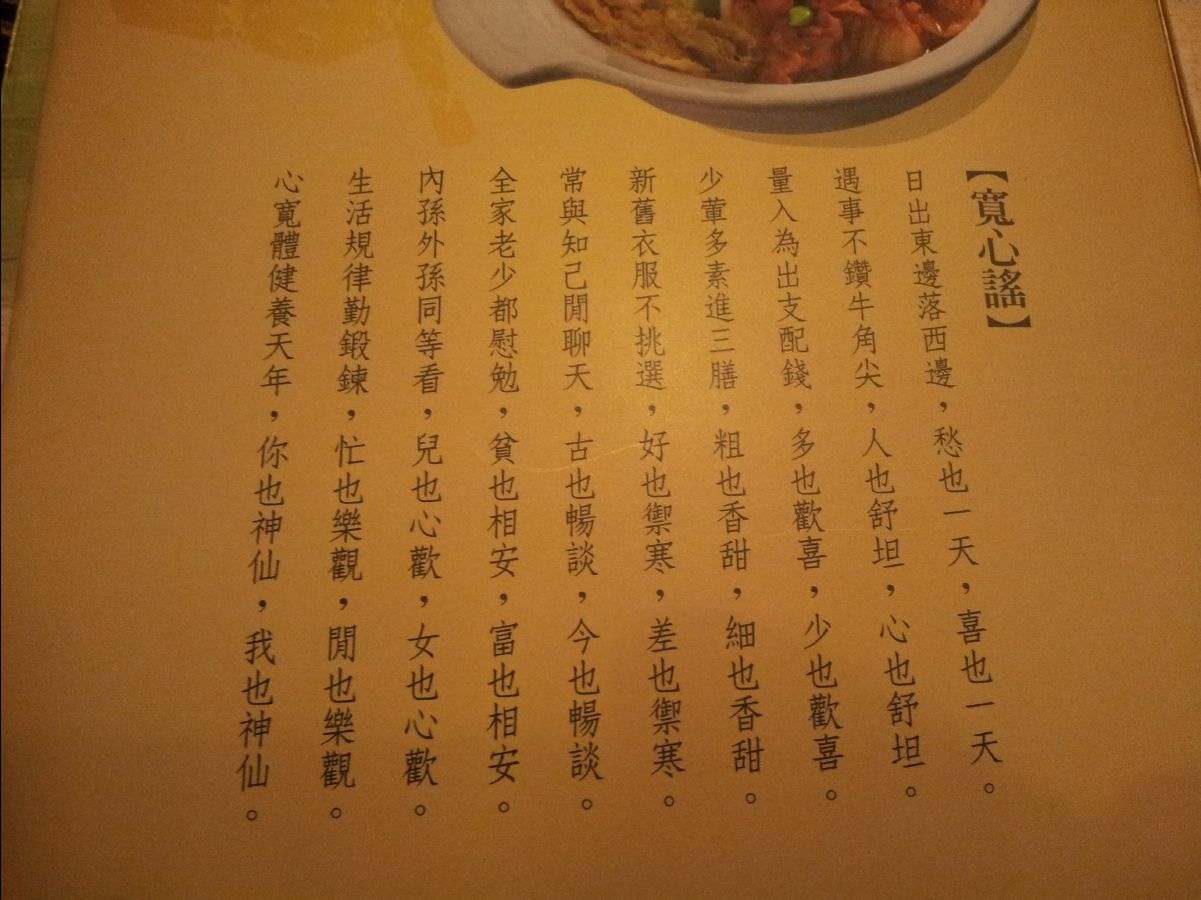 【寬心謠】
日出東邊落西邊，愁也一天，喜也一天。
遇事不鑽牛角尖，人也舒坦，心也舒坦。
量入為出支配錢，多也歡喜，少也歡喜。
少葷多素進三膳，粗也香甜，細也香甜。
新舊衣服不挑選，好也禦寒，差也禦寒。
常與知己閒聊天，古也暢談，今也暢談。
全家老少都慰勉，貧也相安，富也相安。
內孫外孫同等看，兒也心歡，女也心歡。
生活規律勤鍛鍊，忙也樂觀，閒也樂觀。
心寬體健養天年，你也神仙，我也神仙。